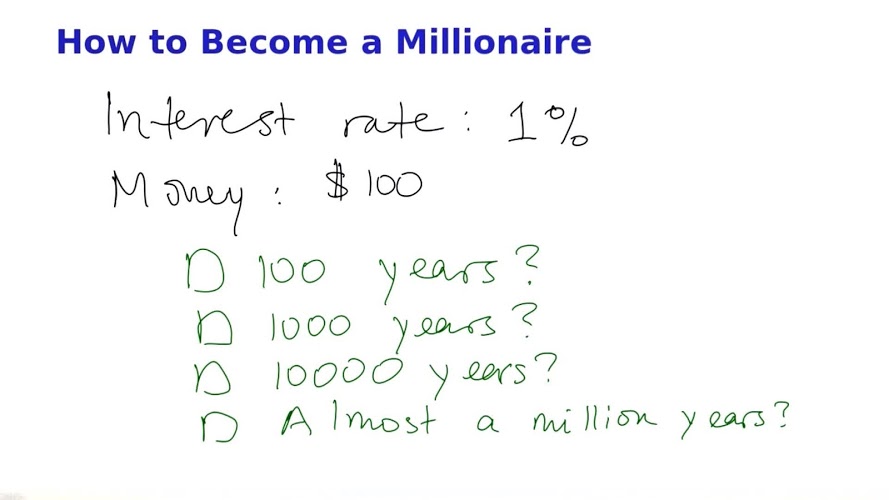 How to Become a Millionaire
Interest rate: 1%
Money: $100
100 years?
1000 years?
10000 years?
Almost a million years?